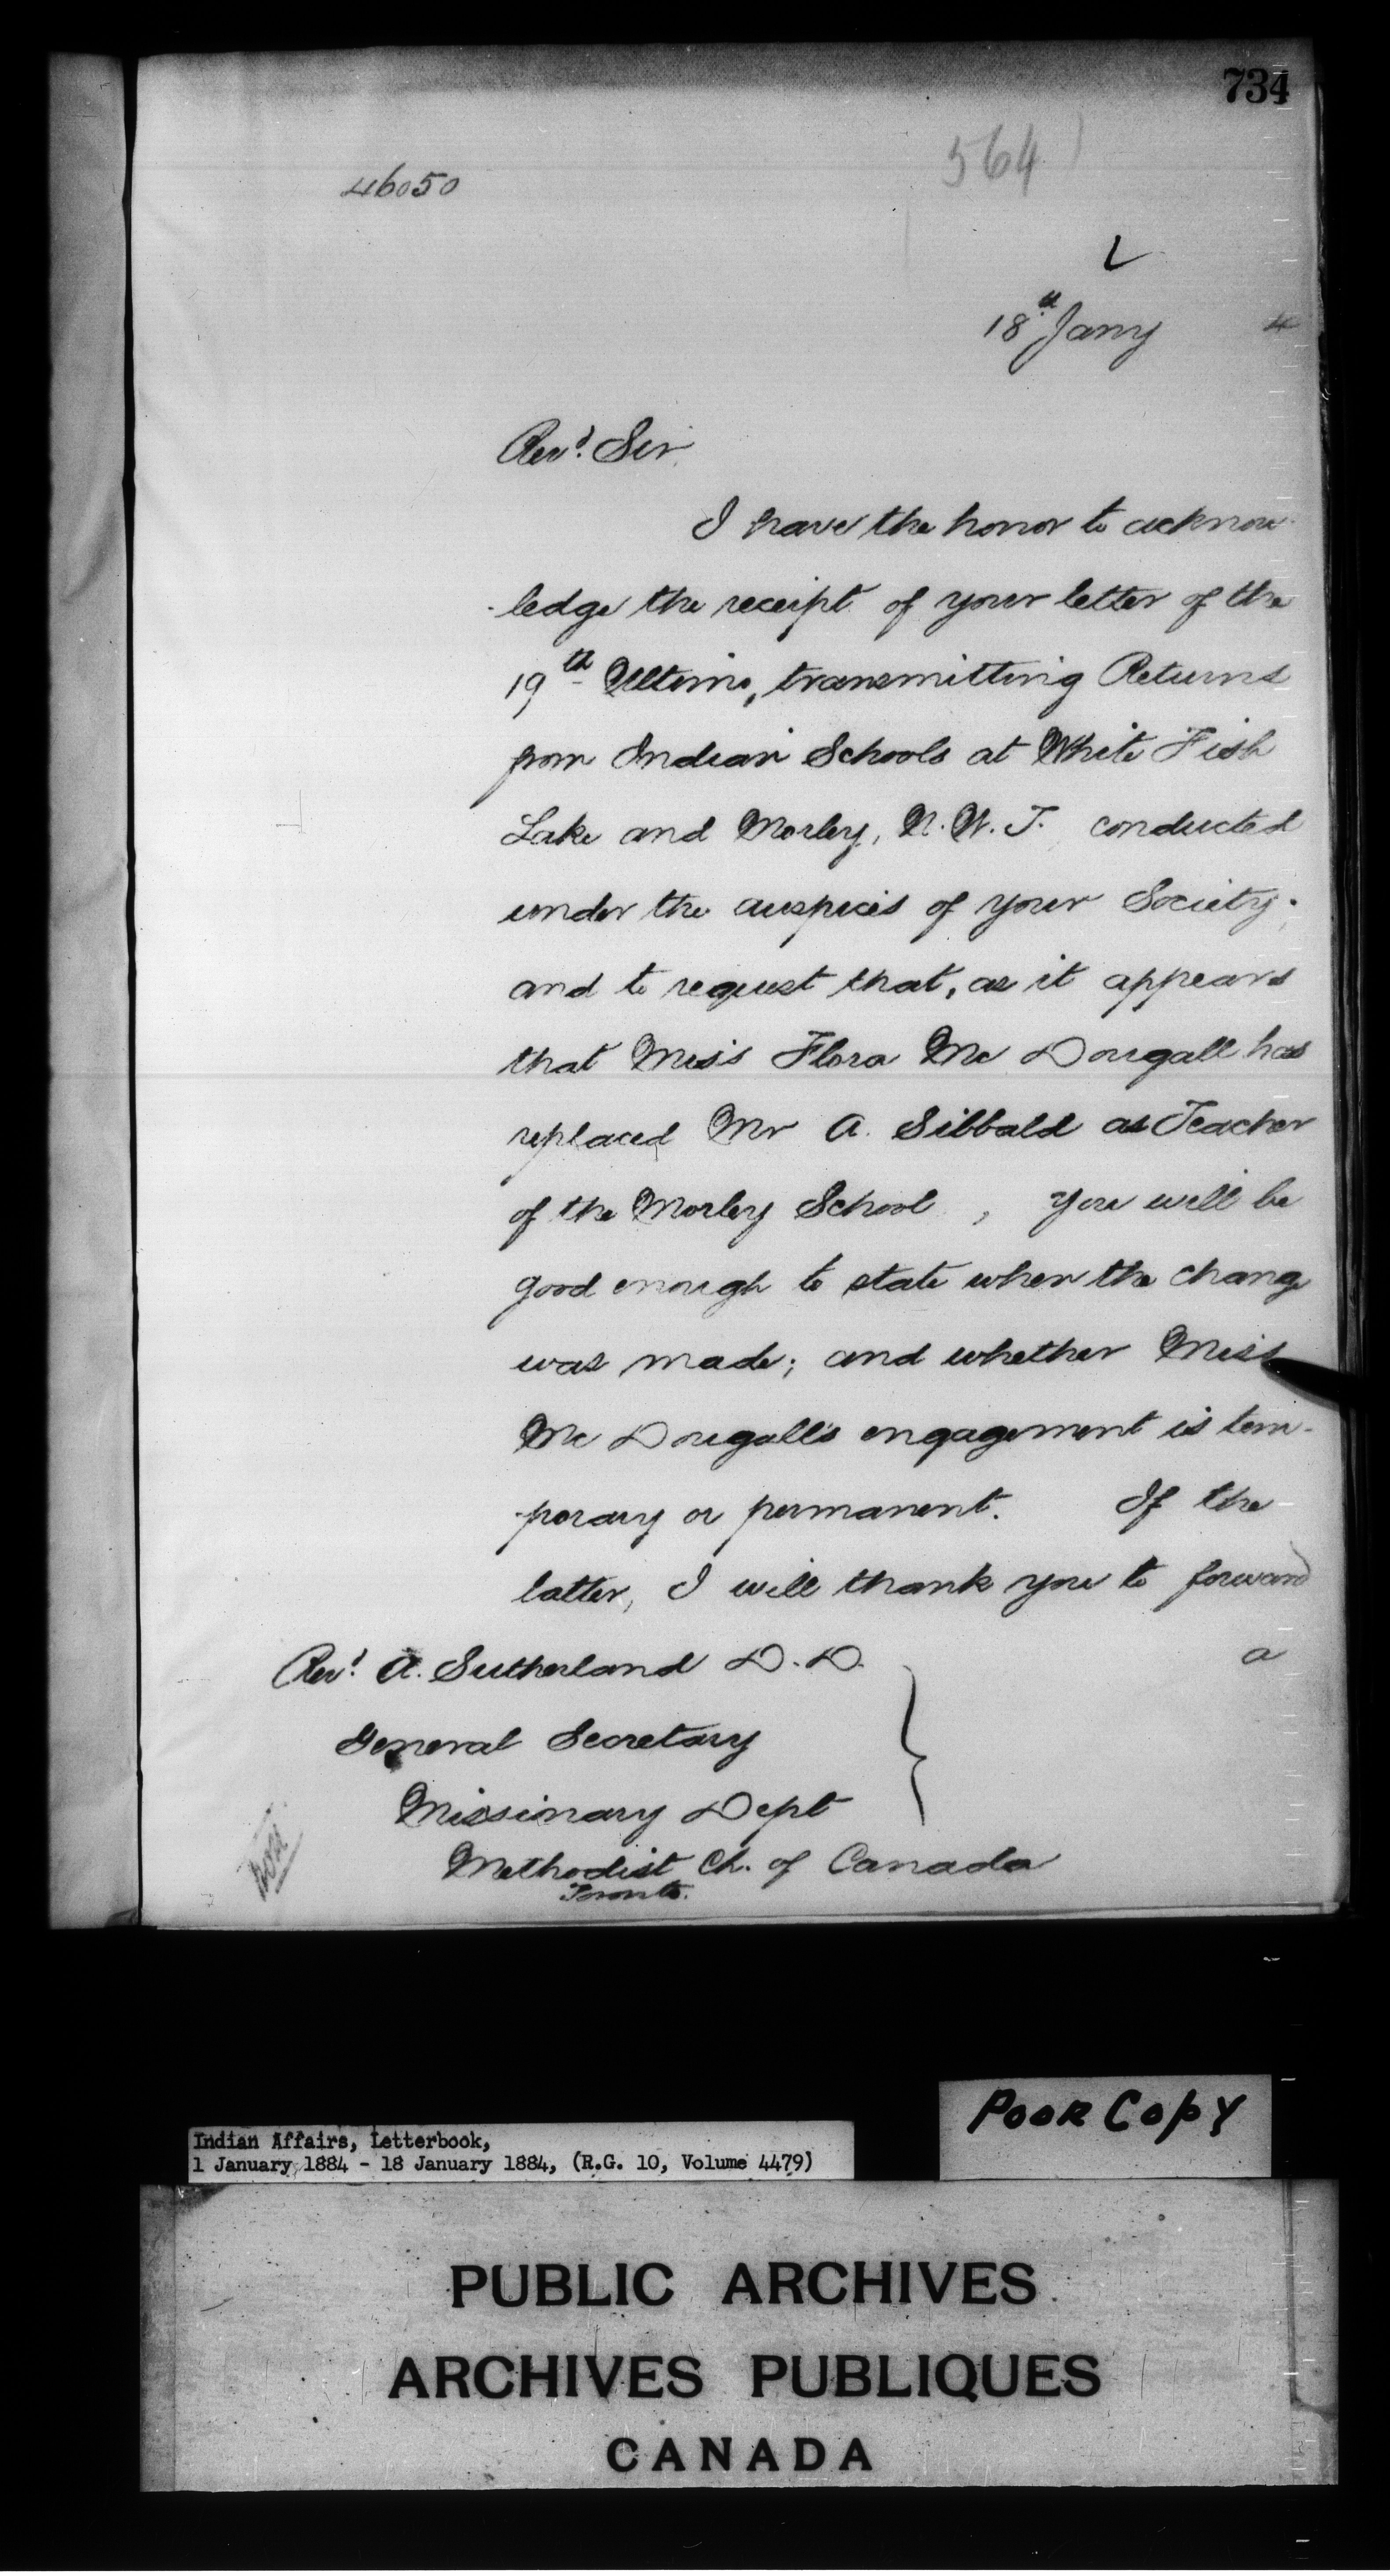 734
564
46050
L
18th Jany 4
Revd. Sir,
I have the honor to acknow-
-ledge the receipt of your letter of the
19th Ultimo, transmitting Returns
from Indian Schools at White Fish
Lake and Morley, N.W.T. conducted
under the auspices of your Society;
and to request that, as it appears
that Miss Flora Mc Dougall has
replaced Mr A. Sibbald as Teacher
of the Morley School, you will be
good enough to state when the change
was made; and whether Miss
Mc Dougall's engagement is tem-
-porary or permanent. If the
latter, I will thank you to forward
a
Revd. A. Sutherland D.D.
General Secretary
Missionary Dept
Methodist Ch. of Canada
Toronto.
Poor Copy
Indian Affairs, Letterbook,
1 January 1884 - 18 January 1884, (R.G. 10, Volume 4479)
PUBLIC ARCHIVES
ARCHIVES PUBLIQUES
CANADA